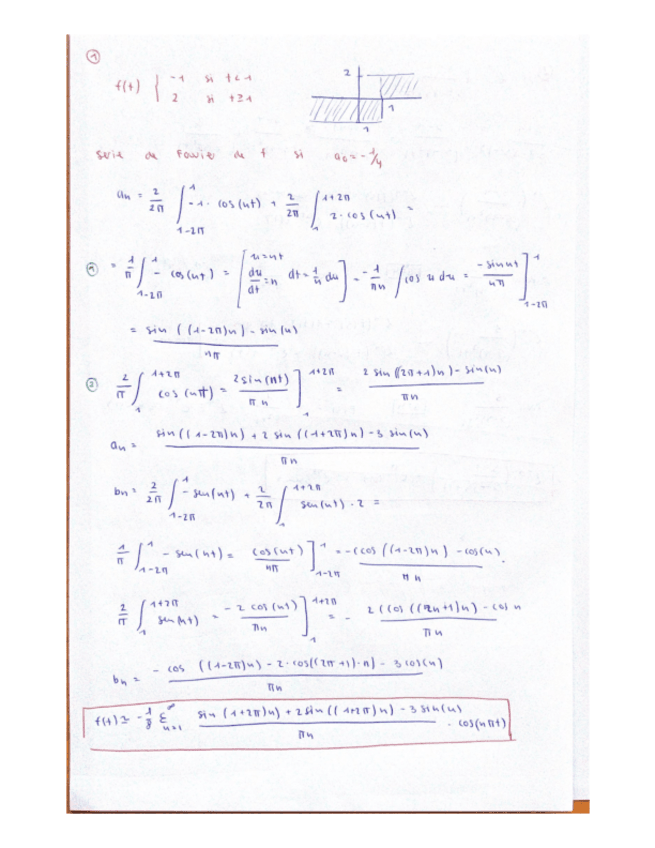 ①
f(t) { -1 si t<1
2 si t≥1
2
1
1
Serie de Fourier de f si a₀ = -1/4
aₙ = 2/2π ∫_{1-2π}^{1} -1 · cos(nt) + 2/2π ∫_{1}^{1+2π} 2 · cos(nt) =
① = 1/π ∫_{1-2π}^{1} - cos(nt) = [ u = nt du/dt = n dt = 1/n du ] = - 1/πn ∫ cos u du = -sin nt / nπ ]_{1-2π}^{1}
= sin((1-2π)n) - sin(n) / nπ
② 2/π ∫_{1}^{1+2π} cos(nπt) = 2 sin(nt) / πn ]_{1}^{1+2π} = 2 sin((2π+1)n) - sin(n) / πn
aₙ = sin((1-2π)n) + 2 sin((1+2π)n) - 3 sin(n) / πn
bₙ = 2/2π ∫_{1-2π}^{1} - sen(nt) + 2/2π ∫_{1}^{1+2π} sen(nt) · 2 =
1/π ∫_{1-2π}^{1} - sen(nt) = cos(nt) / nπ ]_{1-2π}^{1} = -(cos((1-2π)n) - cos(n) / πn
2/π ∫_{1}^{1+2π} sen(nt) = -2 cos(nt) / πn ]_{1}^{1+2π} = - 2(cos((2π+1)n) - cos n / πn
bₙ = - cos((1-2π)n) - 2 · cos((2π+1)·n) - 3 cos(n) / πn
f(t) ≃ -1/8 Σ_{n=1}^{∞} sin(1+2π)n) + 2 sin((1+2π)n) - 3 sin(n) / πn · cos(nπt)